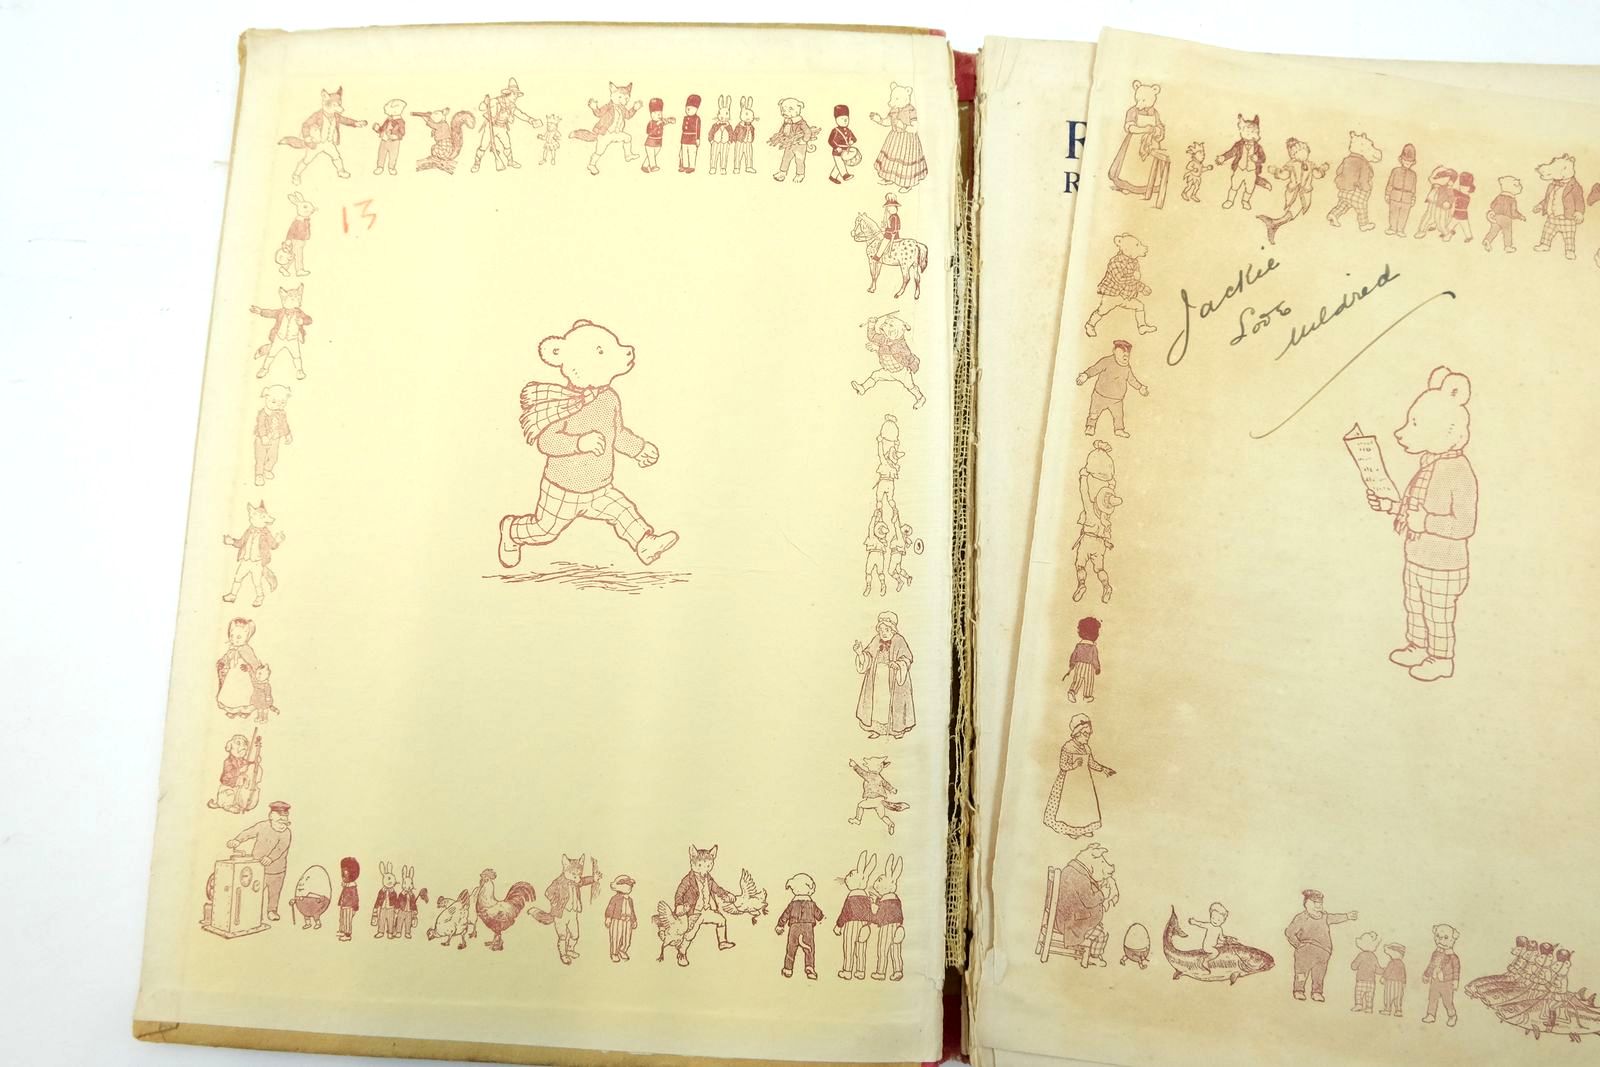 13
R
R
Jackie
Love
Mildred